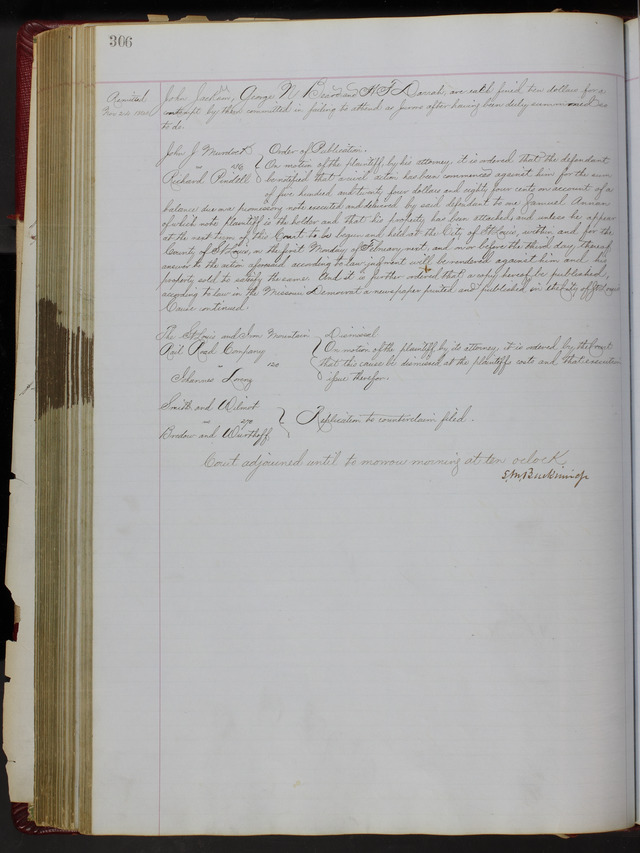 306
Remitted
John Jackson, George N. and H F Darrah, are each fined ten dollars for a
contempt by them committed in failing to attend as jurors after having been duly summoned so
to do.
John J. Murdoch Order of Publication.
vs On motion of the plaintiff, by his attorney it is ordered that the defendant
Richard Pindell be notified that a civil action has been commenced against him for the sum
of five hundred and twenty four dollars and eighty four cents on account of a
balance due on a promissory note executed and delivered by said defendant to one Samuel Annan
of which note plaintiff is the holder and that his property has been attached and unless he appear
at the next term of this Court to be begun and held at the City of St Louis, within and for the
County of St Louis, on the first Monday of February next, and on or before the third day thereof
answer to the action aforesaid according to law judgment will be rendered against him and his
property sold to satisfy the same. And it is further ordered that a copy hereof be published,
according to law in the Missouri Democrat a newspaper printed and published in the City of St Louis
Cause continued.
The St Louis and Iron Mountain Dismissal
Rail Road Company On motion of the plaintiff by its attorney it is ordered by the Court
vs that this cause be dismissed at the plaintiffs costs and that execution
Johannas issue therefor.
Smith and Wilmot
vs Replication to counterclaim filed.
Bredow and
Court adjourned until to morrow morning at ten oclock